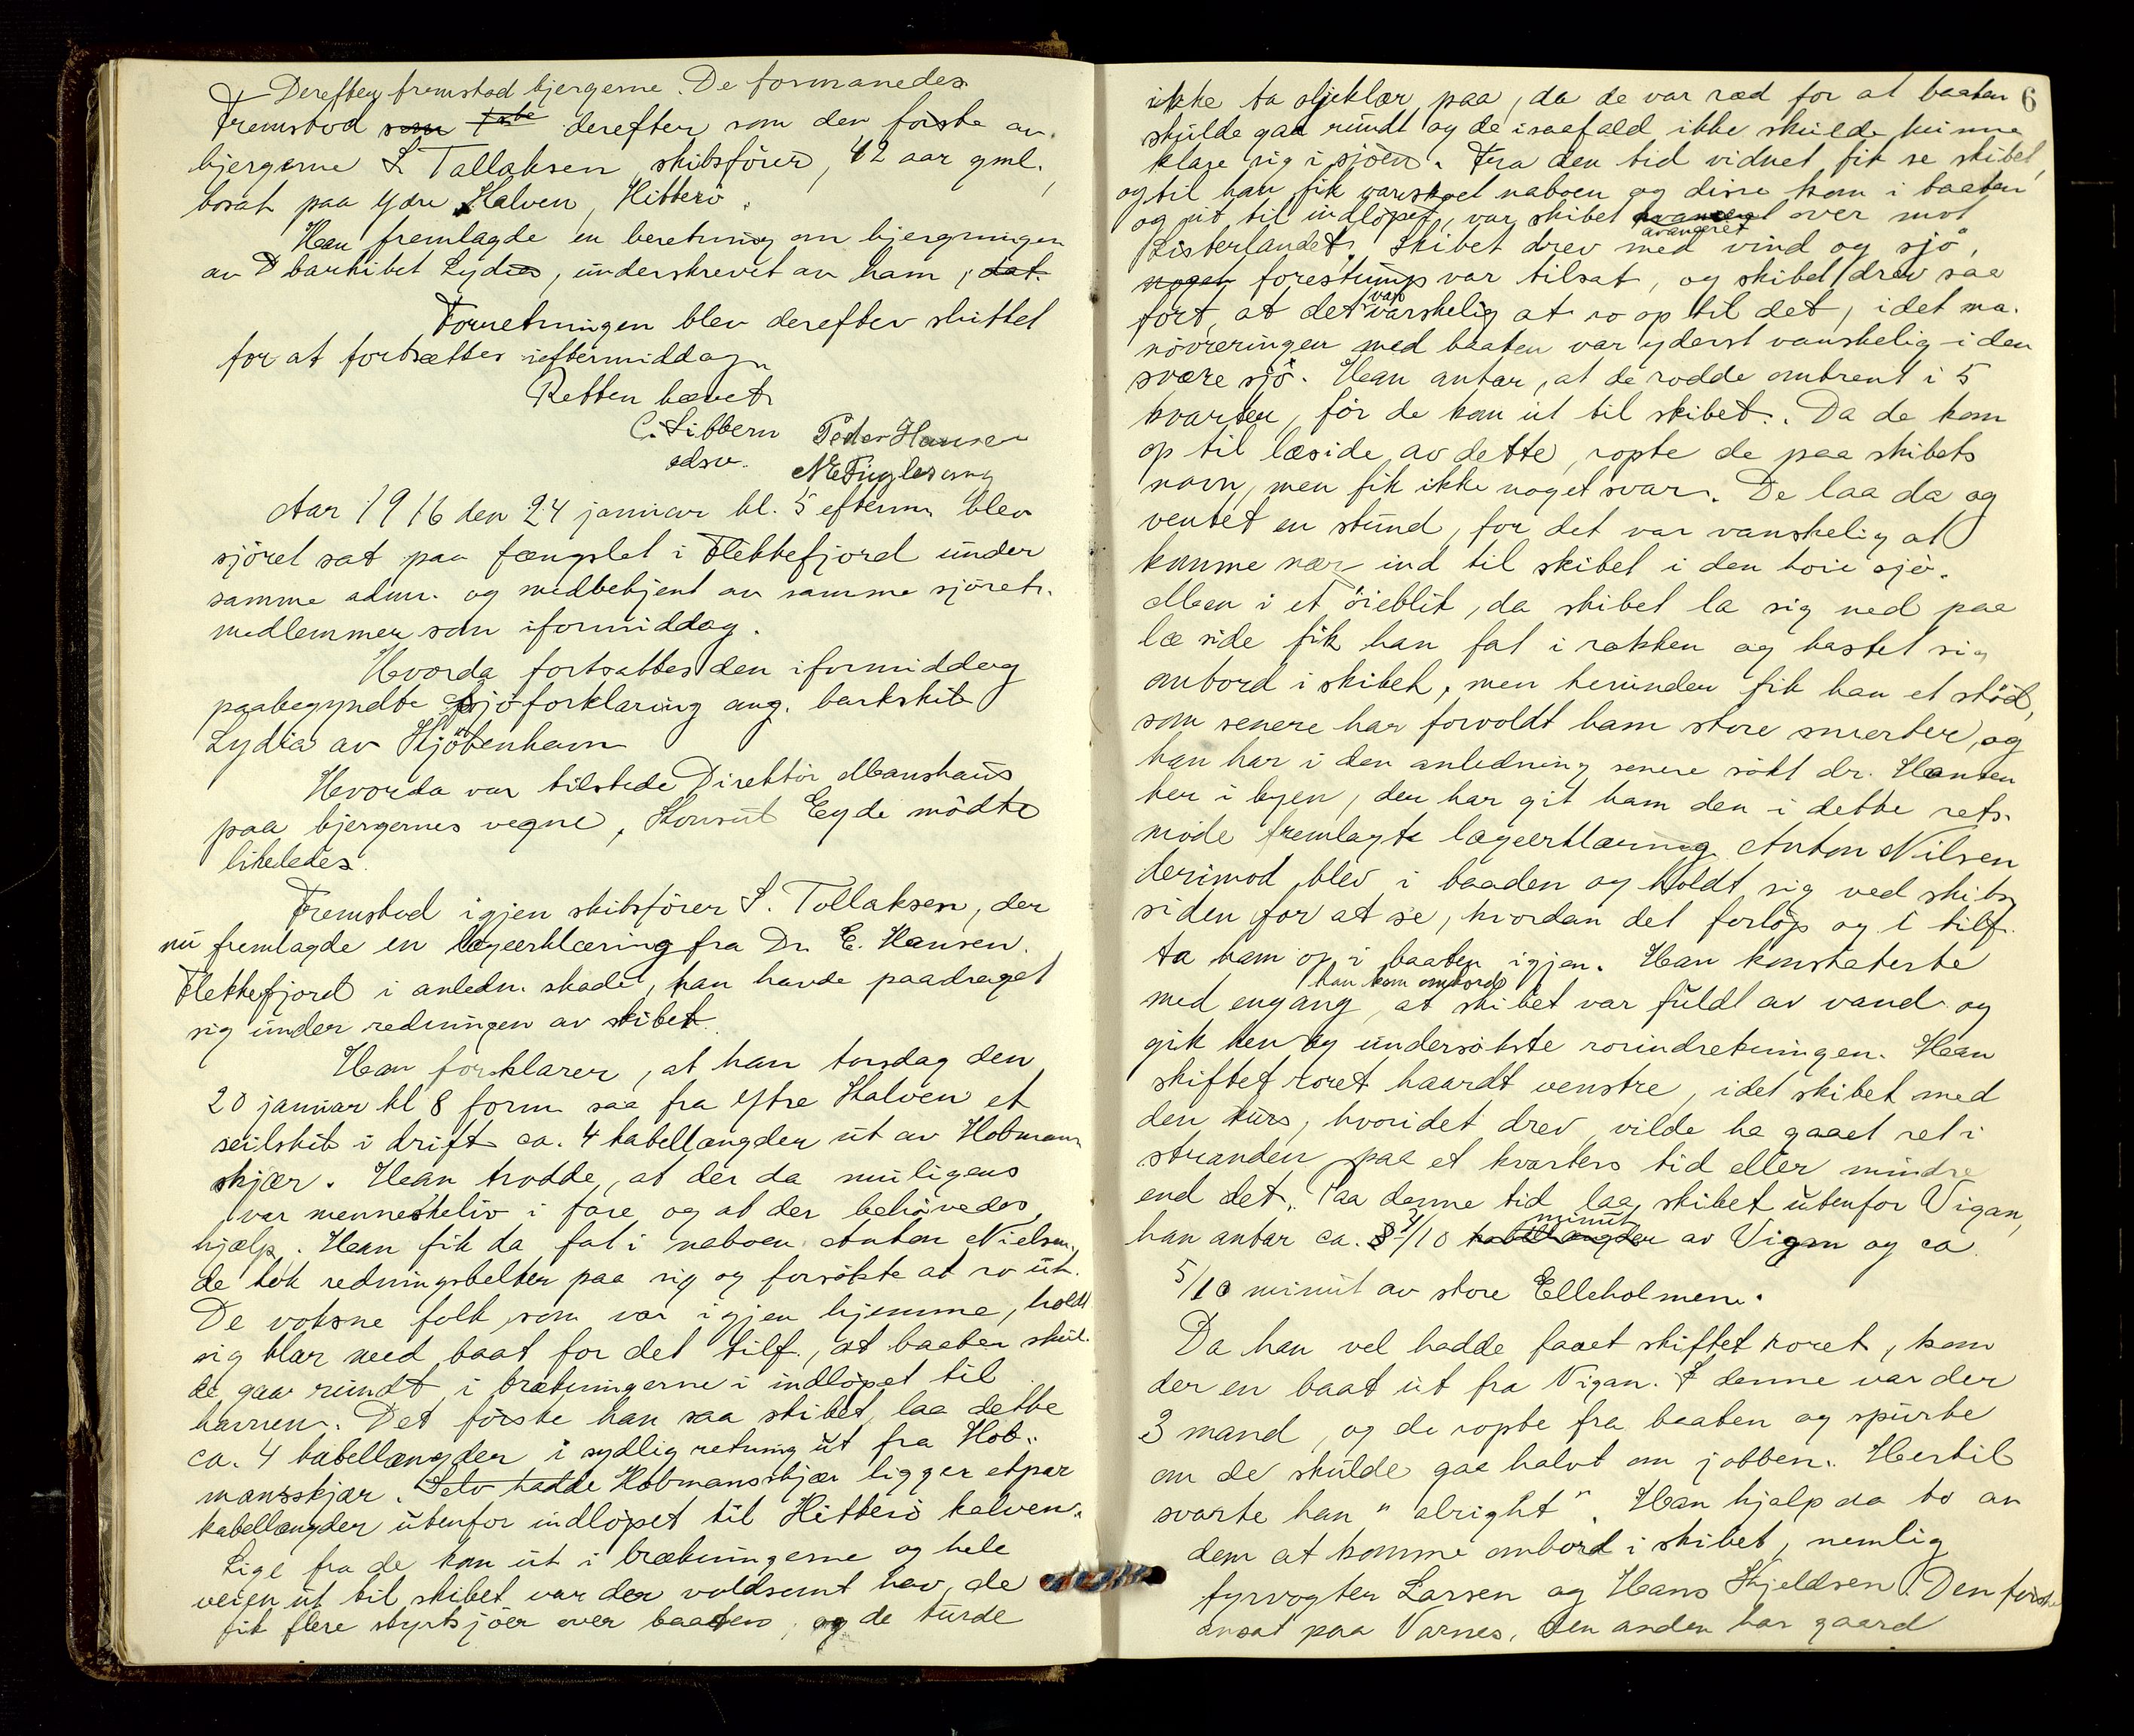 Derefter fremstod bjergerne. De formanedes.
Fremstod som 1ste derefter som den förste av
bjergerne S Tallaksen, skibsförer, 42 aar gml.,
bosat paa Ydre Kalven, Hitterö.
Han fremlagde en beretning om bjergningen
av D barkskibet Lydia, underskrevet av ham, dat.
Forretningen blev derefter sluttet
for at fortsættes i eftermiddag.
Retten hævet
C. Sibbern Peder Hansen
adsv. N E Fuglesang
Aar 1916 den 24 januar kl. 5 efterm. blev
sjöret sat paa fængslet i Flekkefjord under
samme adm. og medbetjent av samme sjörets-
medlemmer som iformiddag.
Hvorda fortsattes den iformiddag
paabegyndte sjöforklaring ang. barkskib
Lydia av Kjöbenhavn
Hvorda var tilstede Direktör Manshaus
paa bjergernes vegne, Konsul Eyde mödte
likeledes.
Fremstod igjen skibsförer S. Tollaksen, der
nu fremlagde en lægeerklæring fra Dr. E. Hansen.
Flekkefjord i anledn. skade, han havde paadraget
sig under redningen av skibet.
Han forklarer, at han torsdag den
20 januar kl 8 form. saa fra Ytre Kalven et
seilskib i drift ca. 4 kabellængder ut av Hobmans
skjær. Han trodde, at der da muligens
var menneskeliv i fare og at der behövedes
hjælp. Han fik da fat i naboen Anton Nielsen,
de tok redningsbelter paa sig og forsökte at ro ut.
De voksne folk, som var igjen hjemme, holdt
sig klar med baat for det tilf., at baaten skul-
de gaa rundt i brækningerne i indlöpet til
havnen. Det förste han saa skibet, laa dette
ca. 4 kabellængder i sydlig retning ut fra Hob-
mansskjær. Selv hadde Hobmansskjær ligger etpar
kabellængder utenfor indlöpet til Hitterö kalven.
Lige fra de kom ut i brækningerne og hele
veien ut til skibet var der voldsomt hav, de
fik flere styrtsjöer over baaten, og de turde
6
ikke ta oljeklær paa, da de var ræd for at baaten
skulde gaa rundt og de isaafald ikke skulde kunne
klare sig i sjöen. Fra den tid vidnet fik se skibet,
og til han fik varskoet naboen og disse kom i baaten
og ut til indlöpet, var skibet avanceret over mot
avanceret
Listerlandet. Skibet drev med vind og sjö,
noget forestumps var tilsat, og skibet drev saa
fort, at det var vanskelig at ro op til det, idet ma-
növreringen med baaten var yderst vanskelig i den
svære sjö. Han antar, at de rodde omtrent i 5
kvarter, för de kom ut til skibet. Da de kom
op til læside av dette, ropte de paa skibets
navn, men fik ikke noget svar. De laa da og
ventet en stund, for det var vanskelig at
komme nær ind til skibet i den höie sjö.
Men i et öieblik, da skibet la sig ned paa
læ side fik han fat i rækken og kastet sig
ombord i skibet, men herunder fik han et stöd,
som senere har forvoldt ham store smerter, og
han har i den anledning senere sökt dr. Hansen
her i byen, der har git ham den i dette rets-
möde fremlagte lægeerklæring. Anton Nilsen
derimod blev i baaden og holdt sig ved skibs-
siden for at se, hvordan det forlöp og i tilf.
ta ham op i baaten igjen. Han konstaterte
han kom ombord
med engang, at skibet var fuldt av vand og
gik hen og undersökte rorindretningen. Han
skiftet roret haardt venstre, idet skibet med
den kurs, hvori det drev, vilde ha gaaet ret i
stranden paa et kvarters tid eller mindre
end det. Paa denne tid laa skibet utenfor Vigan,
minut
han antar ca. 4/10 kabellængder av Vigan og ca.
5/10 minut av store Elleholmene.
Da han vel hadde faaet skiftet roret, kom
der en baat ut fra Vigan. I denne var der
3 mand, og de ropte fra baaten og spurte
om de skulde gaa halvt om jobben. Hertil
svarte han "alright". Han hjalp da to av
dem at komme ombord i skibet, nemlig
fyrvogter Larsen og Hans Kjeldsen. Den förste
ansat paa Varnes, den anden har gaard